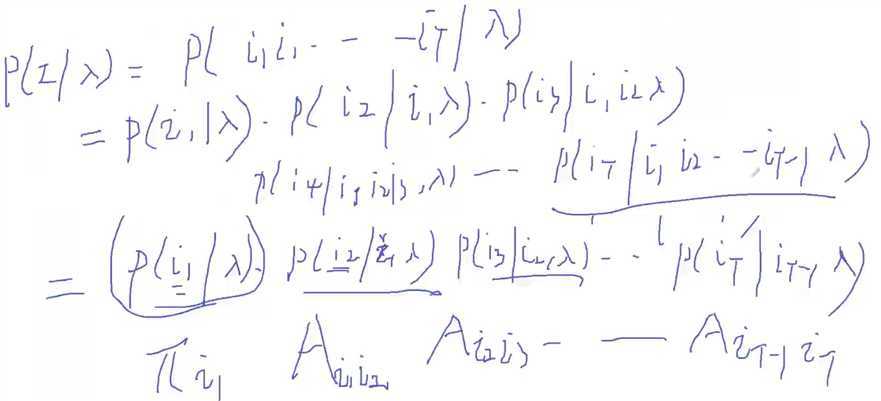 P(I|λ) = P( i₁i₁ - - - i_T | λ)
= P(i₁|λ) · P( i₂ | i₁ λ) · P(i₃ | i₁ i₂ λ)
P(i₄ | i₁ i₂ i₃, λ) --- P(i_T | i₁ i₂ - - i_{T-1} λ)
= (P(i₁|λ)· P(i₂|i₁ λ) P(i₃|i₂,λ) - - - P(i_T | i_{T-1} λ)
π_{i₁} A_{i₁i₂} A_{i₂i₃} - — A_{i_{T-1} i_T}